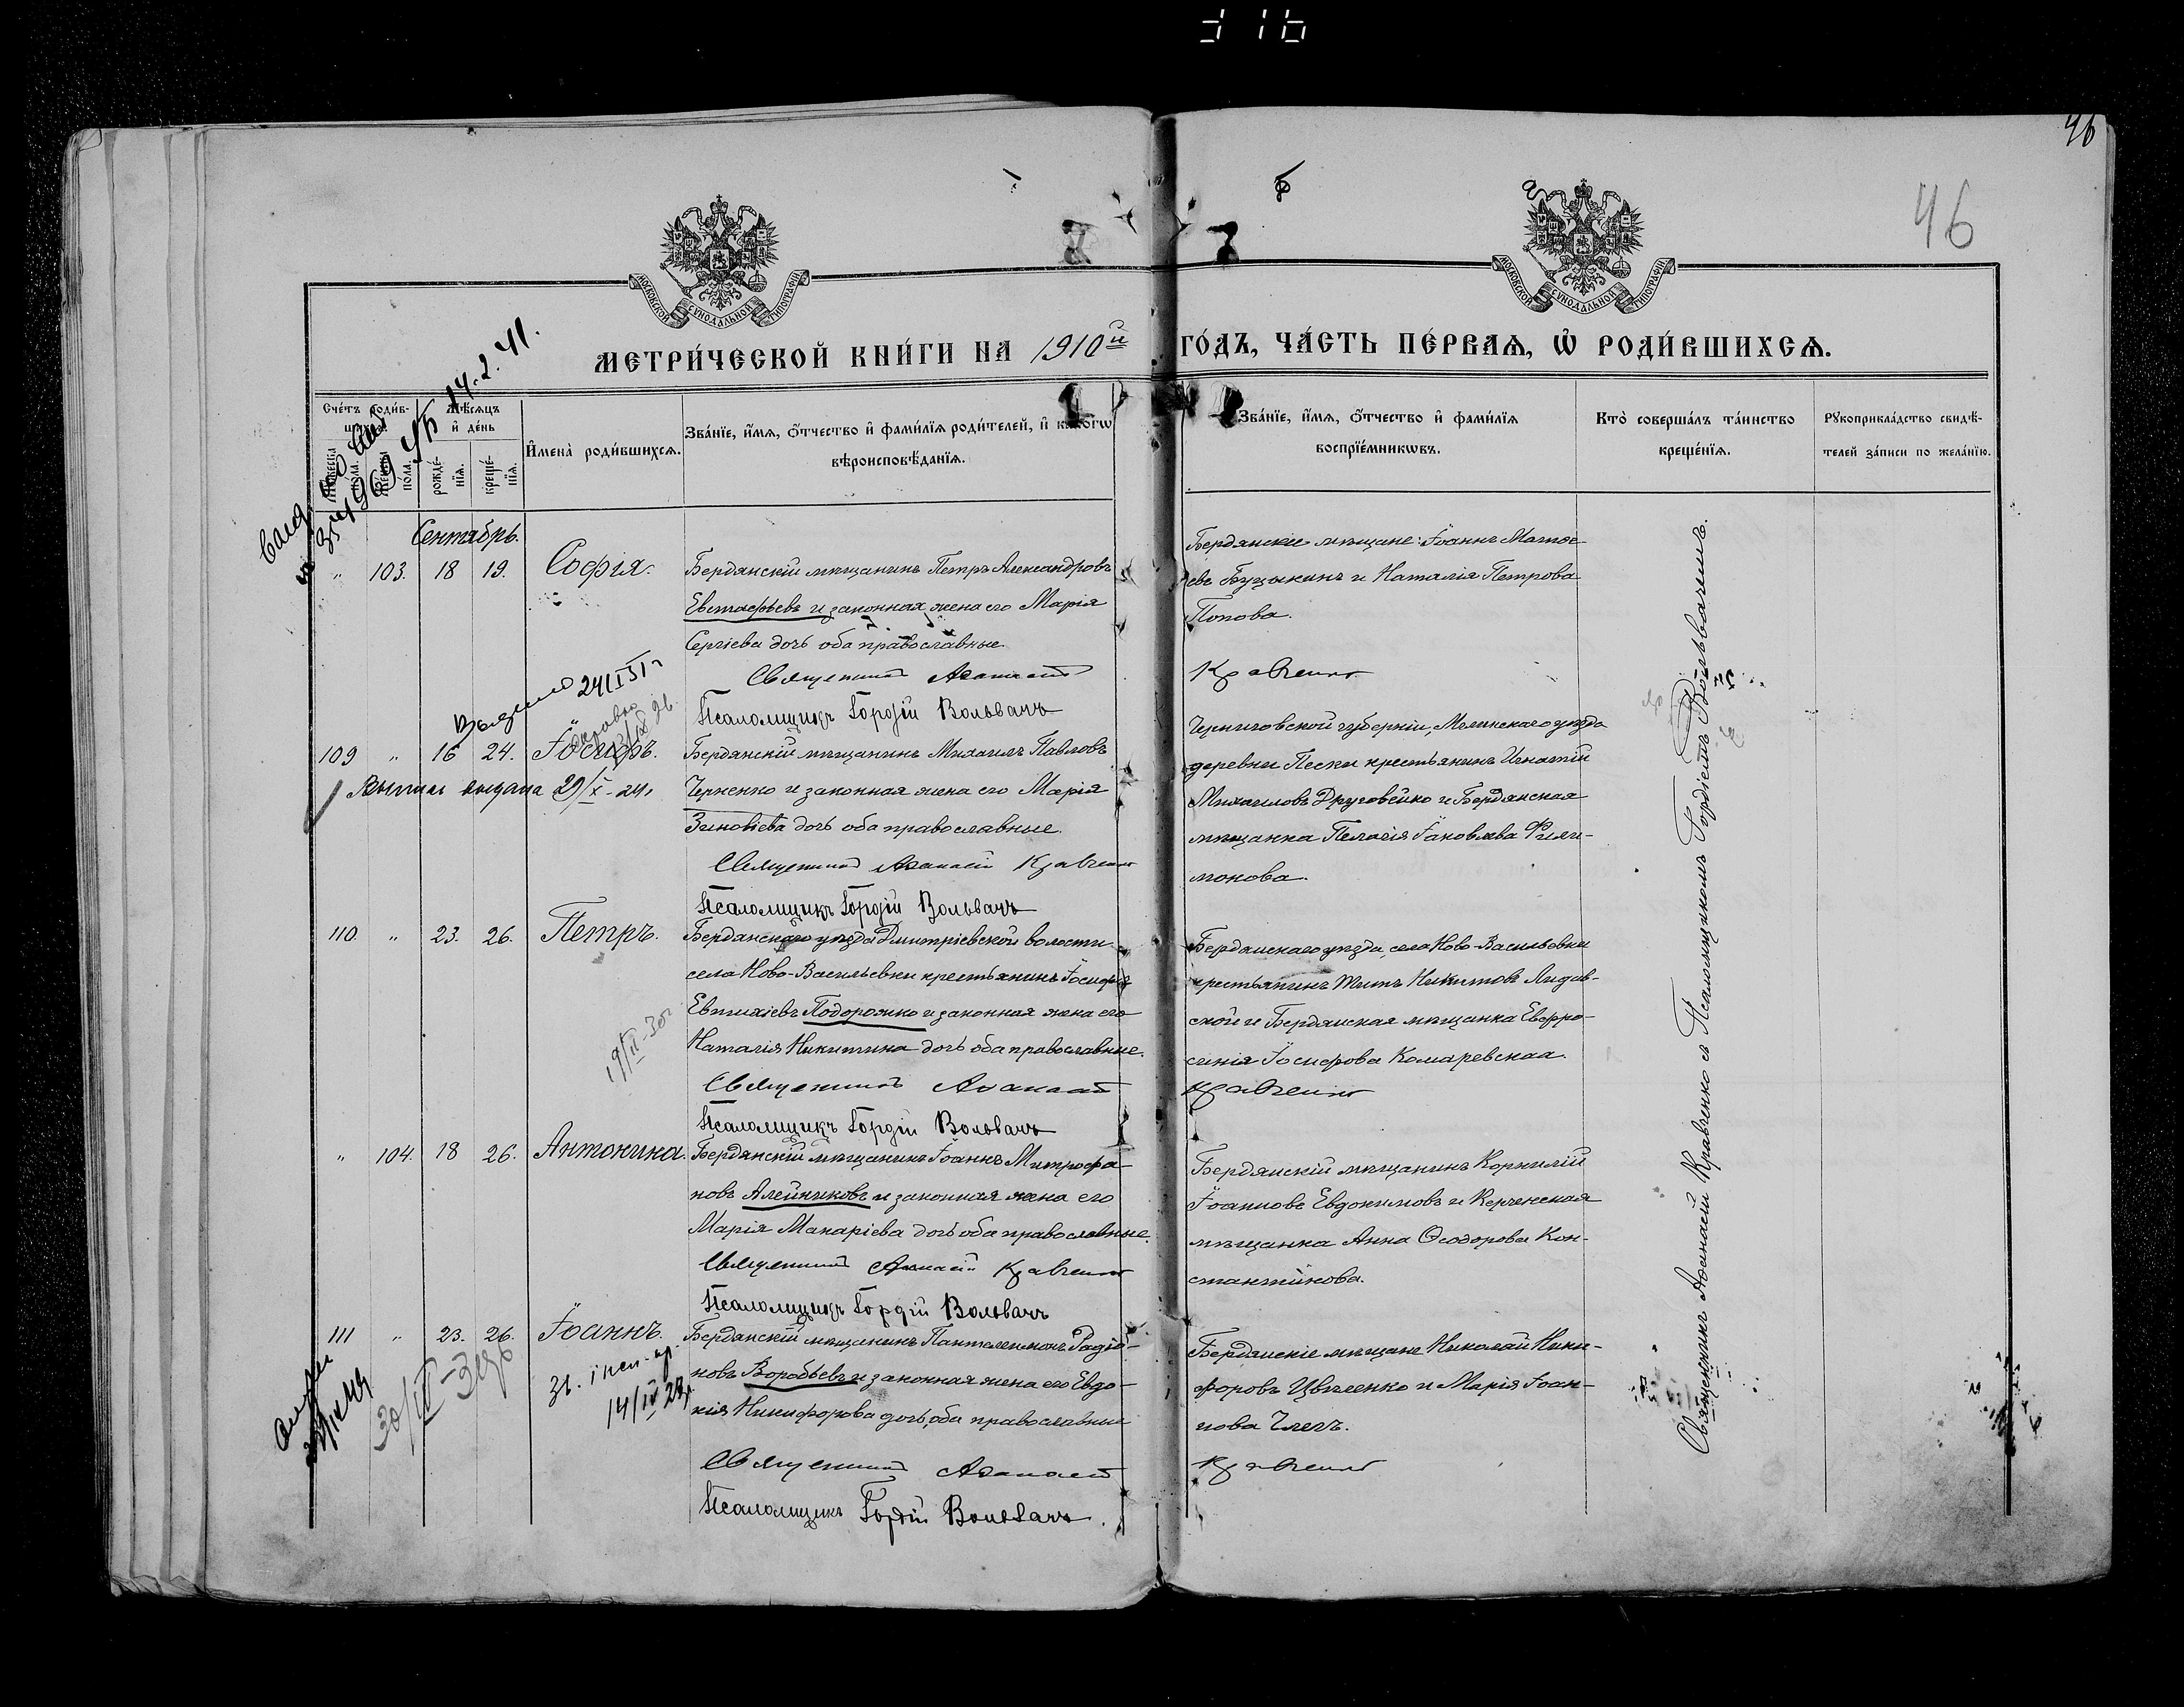 46
46
МОСКОВСКОЙ СѴНОДАЛЬНОЙ ТИПОГРАФІИ
МОСКОВСКОЙ СѴНОДАЛЬНОЙ ТИПОГРАФІИ
МЕТРИ́ЧЕСКОЙ КНИ́ГИ НА 1910й ГО́ДЪ, ЧА́СТЬ ПЕ́РВАѦ, Ѡ҆ РОДИ́ВШИХСѦ.
Сче́тъ роди́вшихсѧ.
Мꙋжеска пола.
Женска пола.
Мѣ́сѧцъ и҆ де́нь
рожде́нїѧ.
креще́нїѧ.
И҆мена̀ роди́вшихсѧ.
Зва́нїе, и҆́мѧ, ѻ҆́тчество и҆ фами́лїѧ роди́телей, и҆ како́гѡ
вѣроисповѣ́данїѧ.
Зва́нїе, и҆́мѧ, ѻ҆́тчество и҆ фами́лїѧ
воспрїе́мникѡвъ.
Кто̀ соверша́лъ та́инство
креще́нїѧ.
Рꙋкоприкла́дство свидѣ́-
телей за́писи по жела́нїю.
14.2.41.
Сентябрь.
" 103. 18 19. Софія.
Бердянскій мѣщанинъ Петръ Александровъ
Евстафьевъ и законная жена его Марія
Сергіева дочь оба православные.
Священникъ Аѳанасій Кравченко
Псаломщикъ Гордій Вольвачъ
Бердянские мѣщане: Іоаннъ Матѳе-
евъ Буцыкинъ и Наталія Петрова
Попова.
109 " 16 24. Іосифъ.
Выпись выдана 29/X-24.
Бердянскій мѣщанинъ Михаилъ Павловъ
Черненко и законная жена его Марія
Зиновіева дочь оба православные.
Священникъ Аѳанасій Кравченко
Псаломщикъ Гордій Вольвачъ
Черниговской губерніи, Мглинскаго уѣзда
деревни Пески крестьянинъ Игнатій
Михаиловъ Друговейко и Бердянская
мѣщанка Пелагія Іаковлева Фили-
монова.
110. " 23. 26. Петръ.
19/II-30г
Бердянскаго уѣзда Дмитріевской волости
села Ново-Васильевки крестьянинъ Іосифъ
Евтихіевъ Подорожко и законная жена его
Наталія Никитина дочь оба православные.
Священникъ Аѳанасій Кравченко
Псаломщикъ Гордій Вольвачъ
Бердянскаго уѣзда, села Ново-Васильевки
крестьянинъ Титъ Никитовъ Лидов-
ской и Бердянская мѣщанка Евфро-
синія Іосифова Комаревская.
" 104. 18 26. Антонина.
Бердянскій мѣщанинъ Іоаннъ Митрофа-
новъ Алейниковъ и законная жена его
Марія Макаріева дочь оба православные.
Священникъ Аѳанасій Кравченко
Псаломщикъ Гордій Вольвачъ
Бердянскій мѣщанинъ Корнилій
Іоанновъ Евдокимовъ и Керченская
мѣщанка Анна Ѳеодорова Кон-
стантинова.
111 " 23. 26. Іоаннъ.
Бердянскій мѣщанинъ Пантелеимонъ Радіо-
новъ Воробьевъ и законная жена его Евдо-
кія Никифорова дочь, оба православные
Священникъ Аѳанасій Кравченко
Псаломщикъ Гордій Вольвачъ.
Бердянскіе мѣщане Николай Ники-
форовъ Цвиленко и Марія Іоан-
нова
Священникъ Аѳанасій Кравченко съ Псаломщикомъ Гордіемъ Вольвачемъ.